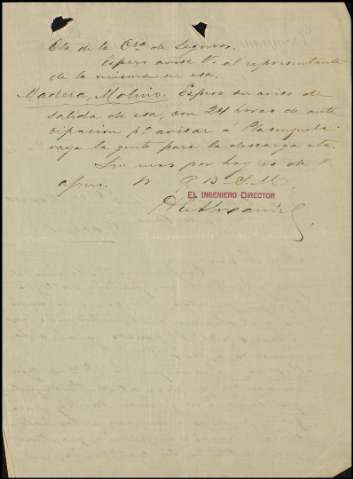 Cta de la Cia de Seguros.
Espero avise V. al representante
de la misma en esa.
Madera, Molino. Espero su aviso de
salida de esa, con 24 horas de anti
cipación pa avisar á Plazuela
vaya la gente para la descarga etc.
Sin mas por hoy es de V.
afmo. S. S.
EL INGENIERO DIRECTOR